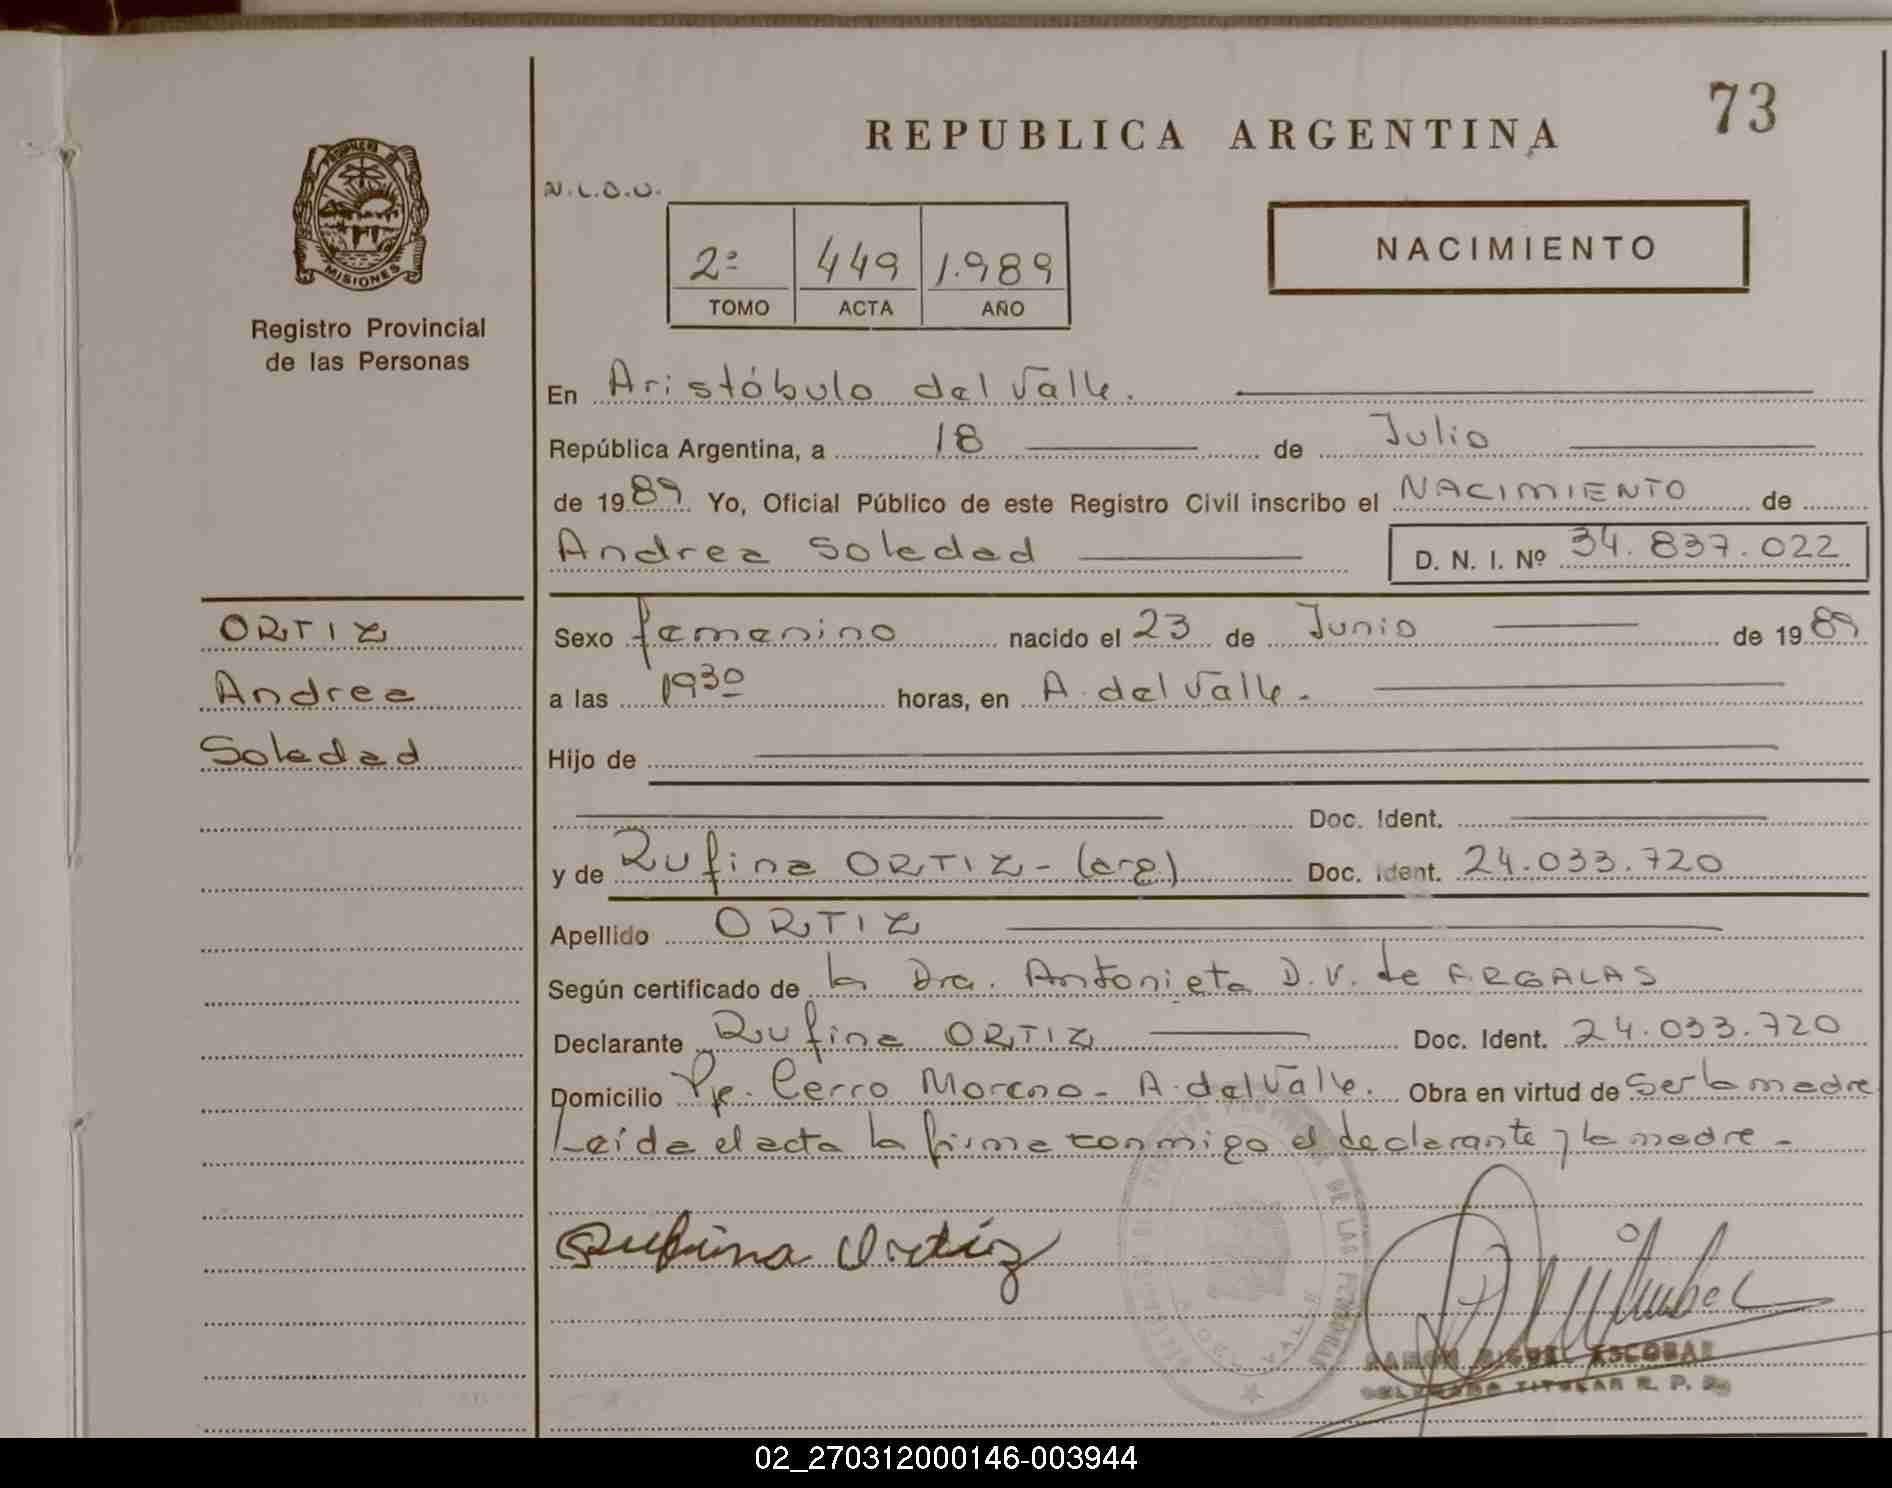 73
REPUBLICA ARGENTINA
N.L.O.U.
PROVINCIA DE
MISIONES
Registro Provincial
de las Personas
2º 449 1.989
TOMO ACTA AÑO
NACIMIENTO
En Aristóbulo del Valle.
República Argentina, a 18 de Julio
de 1989 Yo, Oficial Público de este Registro Civil inscribo el NACIMIENTO de
Andrea Soledad D. N. I. Nº 34.837.022
ORTIZ
Andrea
Soledad
Sexo femenino nacido el 23 de Junio de 1989
a las 1930 horas, en A. del Valle.
Hijo de
Doc. Ident.
y de Rufina ORTIZ - (arg) Doc. Ident. 24.033.720
Apellido ORTIZ
Según certificado de la Dra. Antonieta D.V. de ARGALAS
Declarante Rufina ORTIZ Doc. Ident. 24.033.720
Domicilio Pje. Cerro Moreno - A. del Valle. Obra en virtud de Ser la madre
Leída el acta la firma conmigo el declarante y la madre -
Rufina Ortiz
DE LAS PERSONAS
RAMON MIGUEL ESCOBAR
DELEGADO TITULAR R. P. P.
02_270312000146-003944